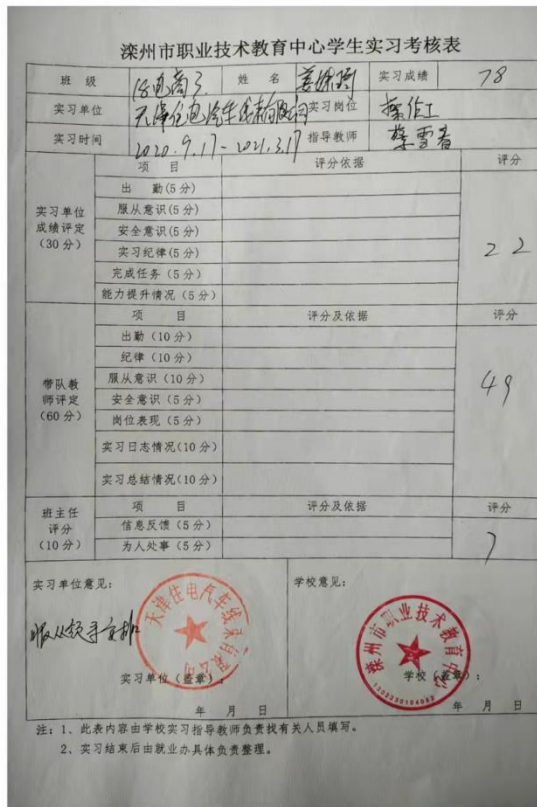 滦州市职业技术教育中心学生实习考核表
班 级 18电商3 姓 名 实习成绩 78
实习单位 天津住电汽车线束有限公司 实习岗位 操作工
实习时间 2020.9.17-2021.3.17 指导教师
项 目 评分依据 评分
实习单位成绩评定(30分)
出 勤(5分)
服从意识(5分)
安全意识(5分)
实习纪律(5分)
完成任务(5分)
能力提升情况(5分)
22
项 目 评分及依据 评分
带队教师评定(60分)
出勤(10分)
纪律(10分)
服从意识(10分)
安全意识(5分)
岗位表现(5分)
实习日志情况(10分)
实习总结情况(10分)
49
班主任评分(10分)
项 目 评分及依据 评分
信息反馈(5分)
为人处事(5分)
7
实习单位意见: 学校意见:
服从领导安排
天津住电汽车线束有限公司
滦州市职业技术教育中心
实习单位(盖章): 学校(盖章):
年 月 日 年 月 日
注:1、此表内容由学校实习指导教师负责找有关人员填写。
2、实习结束后由就业办具体负责整理。